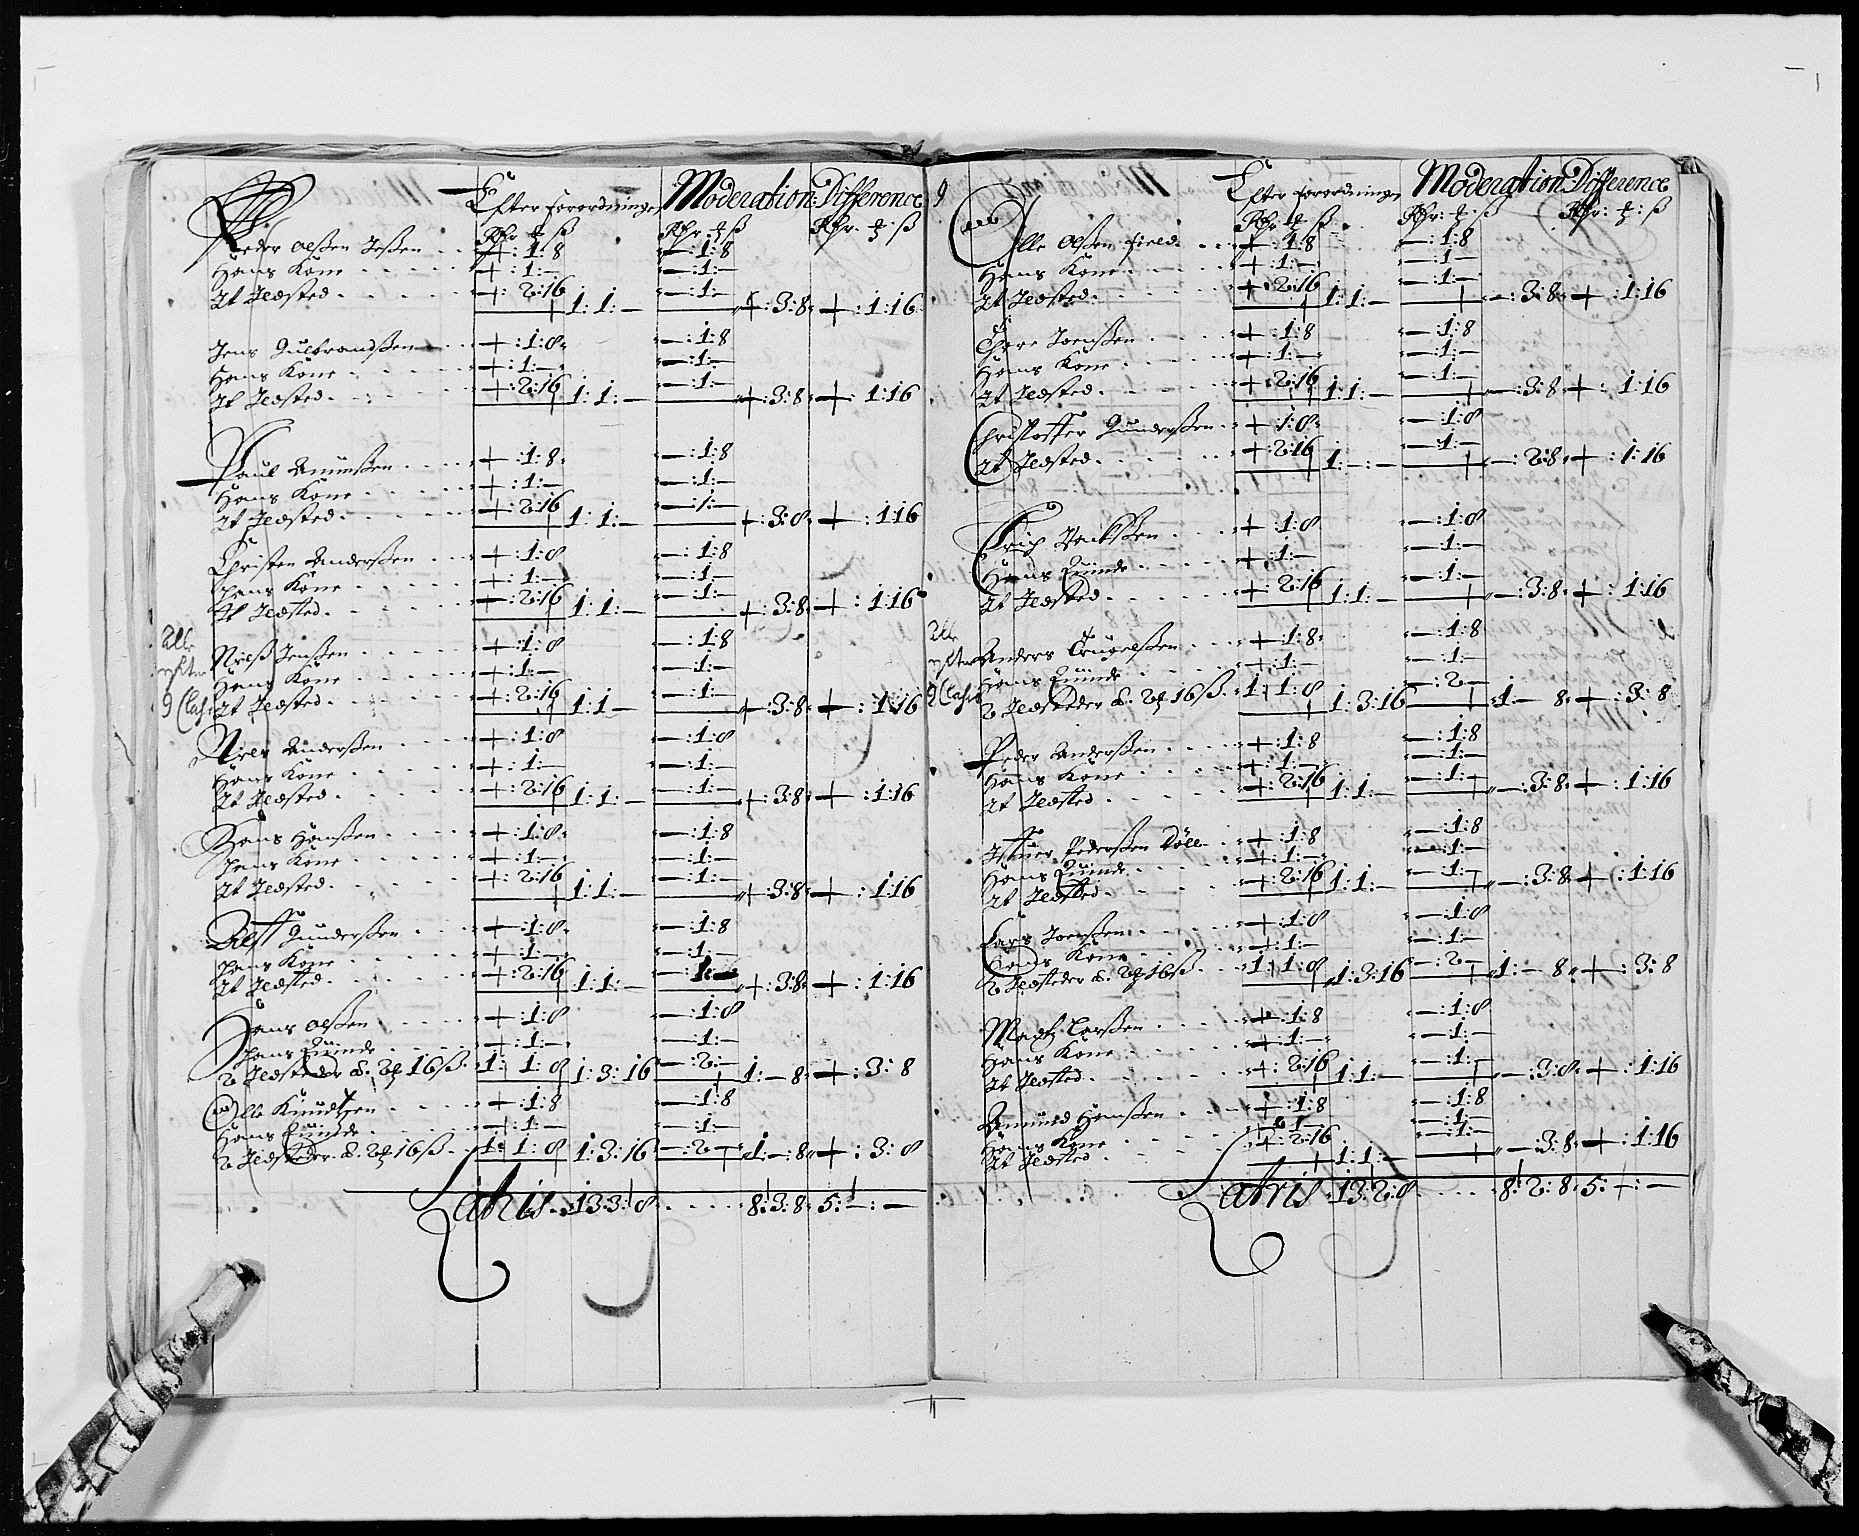 Efter Forordningen Moderation: Difference
Rdr ß Rdr ß Rdr. ß
Peder Olßen Jeßen . . +:1:8 —:1:8
Hans Kone . . . . +:1:— —:1:—
It Ildsted . . . . . +:2:16 1:1:— —:1:— +:3:8 +:1:16
Jens Gulbrandßen +:1:8 —:1:8
Hans Kone . . . . +:1:— —:1:—
It Ildsted . . . . +:2:16 1:1:— —:1:— +:3:8 +:1:16
Paul Amunßen . . . +:1:8 —:1:8
Hans Kone . . . . +:1:— —:1:—
It Ildsted . . . . +:2:16 1:1:— —:1:— +:3:8 +:1:16
Christen Anderßen . . +:1:8 —:1:8
Hans Kone . . . . +:1:— —:1:—
It Ildsted . . . . —:2:16 1:1:— —:1:— +:3:8 +:1:16
Alle
efter
9 Clahs
Nielß Jenßen . . . . +:1:8 —:1:8
Hans Kone . . . . +:1:— —:1:—
It Ildsted . . . . +:2:16 1:1— —:1:— +:3:8 +:1:16
Niels Anderßen . . . +:1:8 —:1:8
Hans Kone . . . . +:1:— —:1:—
It Ildsted . . . . +:2:16 1:1:— —:1:— +:3:8 +:1:16
Hans Hanßen . . . . +:1:8 —:1:8
Hans Kone . . . . +:1:— —:1:—
It Ildsted . . . . +:2:16 1:1:— —:1:— +:3:8 +:1:16
Gunderßen . . . +:1:8 —:1:8
Hans Kone . . . . +:1:— —:1:—
It Ildsted . . . . +:2:16 1:1:— —:1:— +:3:8 +:1:16
Hans Olßen . . . . +:1:8 —:1:8
Hans Quinde . . . +:1:— —:1:—
2 Ildsteder à 2 16ß. 1:1:8 1:3:16 —:2:— 1:—8 +:3:8
Olle Knudtzen . . . +:1:8 —:1:8
Hans Quinde . . . +:1:— —:1:—
2 Ildsteder à 2 16ß. 1:1:8 1:3:16 —:2— 1:—:8 +:3:8
Latris 13:3:8 . . . . 8:3:8 5:—:—
9
Efter Forordningen Moderation Difference
Rdr ß Rdr: ß Rdr: ß
Olle Olßen Field . . +:1:8 —:1:8
Hans Kone . . . +:1:— —:1—
It Ildsted . . . . +:2:16 1:1:— —:1:— —:3:8 +:1:16
Thore Joenßen . . . +:1:8 —:1:8
Hans Kone . . . . +:1:— —:1:—
It Ildsted . . . . +:2:16 1:1:— —:1:— —:3:8 +:1:16
Christoffer Gunderßen . +:1:8 —:1:8
It Ildsted . . . . +:2:16 1:—:— —:1:— —:2:8 +:1:16
Erich . . . +:1:8 —:1:8
Hans Quinde . . . +:1:— —:1:—
It Ildsted . . . . +:2:16 1:1:— —:1:— —:3:8 +:1:16
Alle
efter
9 Clahs
Anders Trugelßen . . +:1:8 —:1:8
Hans Quinde . . . +:1:— —:1:—
2 Ildsteder à 2 16ß. 1:1:8 1:3:16 —:2— 1:— 8 +:3:8
Peder Anderßen . . . +:1:8 —:1:8
Hans Kone . . . . +:1:— —:1:—
It Ildsted . . . . +:2:16 1:1:— —:1:— —:3:8 +:1:16
Pederßen . . +:1:8 —:1:8
Hans Quinde . . . +:1:— —:1:—
It Ildsted . . . . +:2:16 1:1:— —:1:— —:3:8 +:1:16
Lars Joenßen . . . +:1:8 —:1:8
Hans Kone . . . +:1:— —:1:—
2 Ildsteder à 2 16ß. 1:1:8 1:3:16 —:2— 1:— 8 +:3:8
Madtz Larßen . . . +:1:8 —:1:8
Hans Kone . . . +:1:— —:1:—
It Ildsted . . . . +:2:16 1:1:— —:1:— —:3:8 +:1:16
Amund Hanßen . . . +:1:8 —:1:8
Hans Kone . . . +:1— —:1:—
It Ildsted . . . . +:2:16 1:1:— —:1:— —:3:8 +:1:16
Latris 13:2:8 . . . . 8:2:8 5:+:—